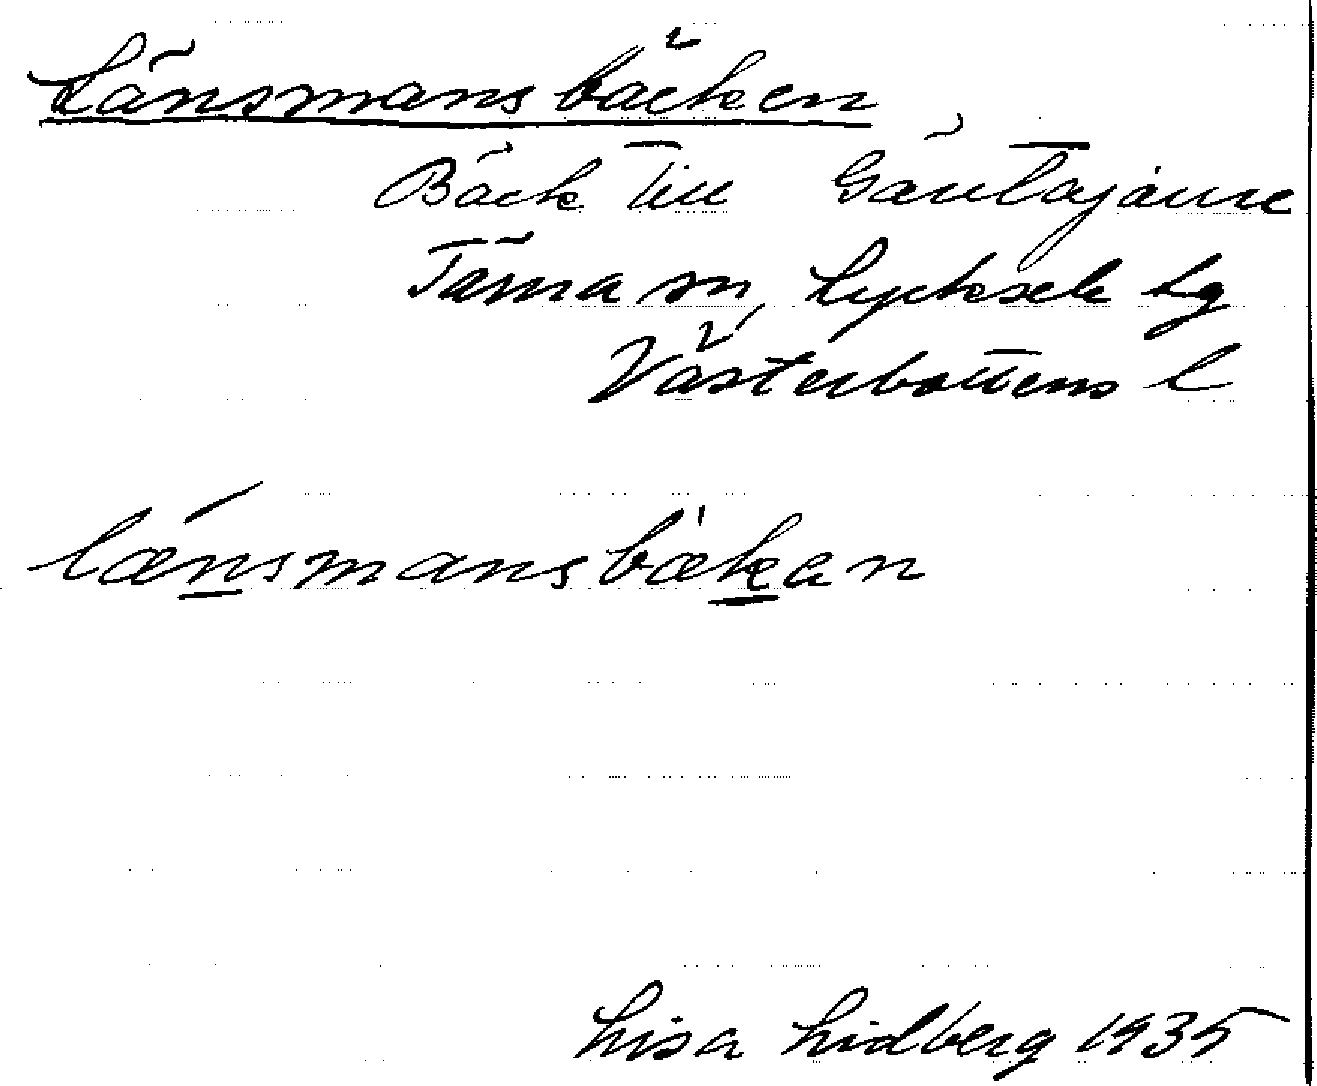 Länsmansbäcken
Bäck till Gäutajaure
Tärna sn, Lycksele lg
Västerbottens l
lænsmansbækan
Lisa Lidberg 1935